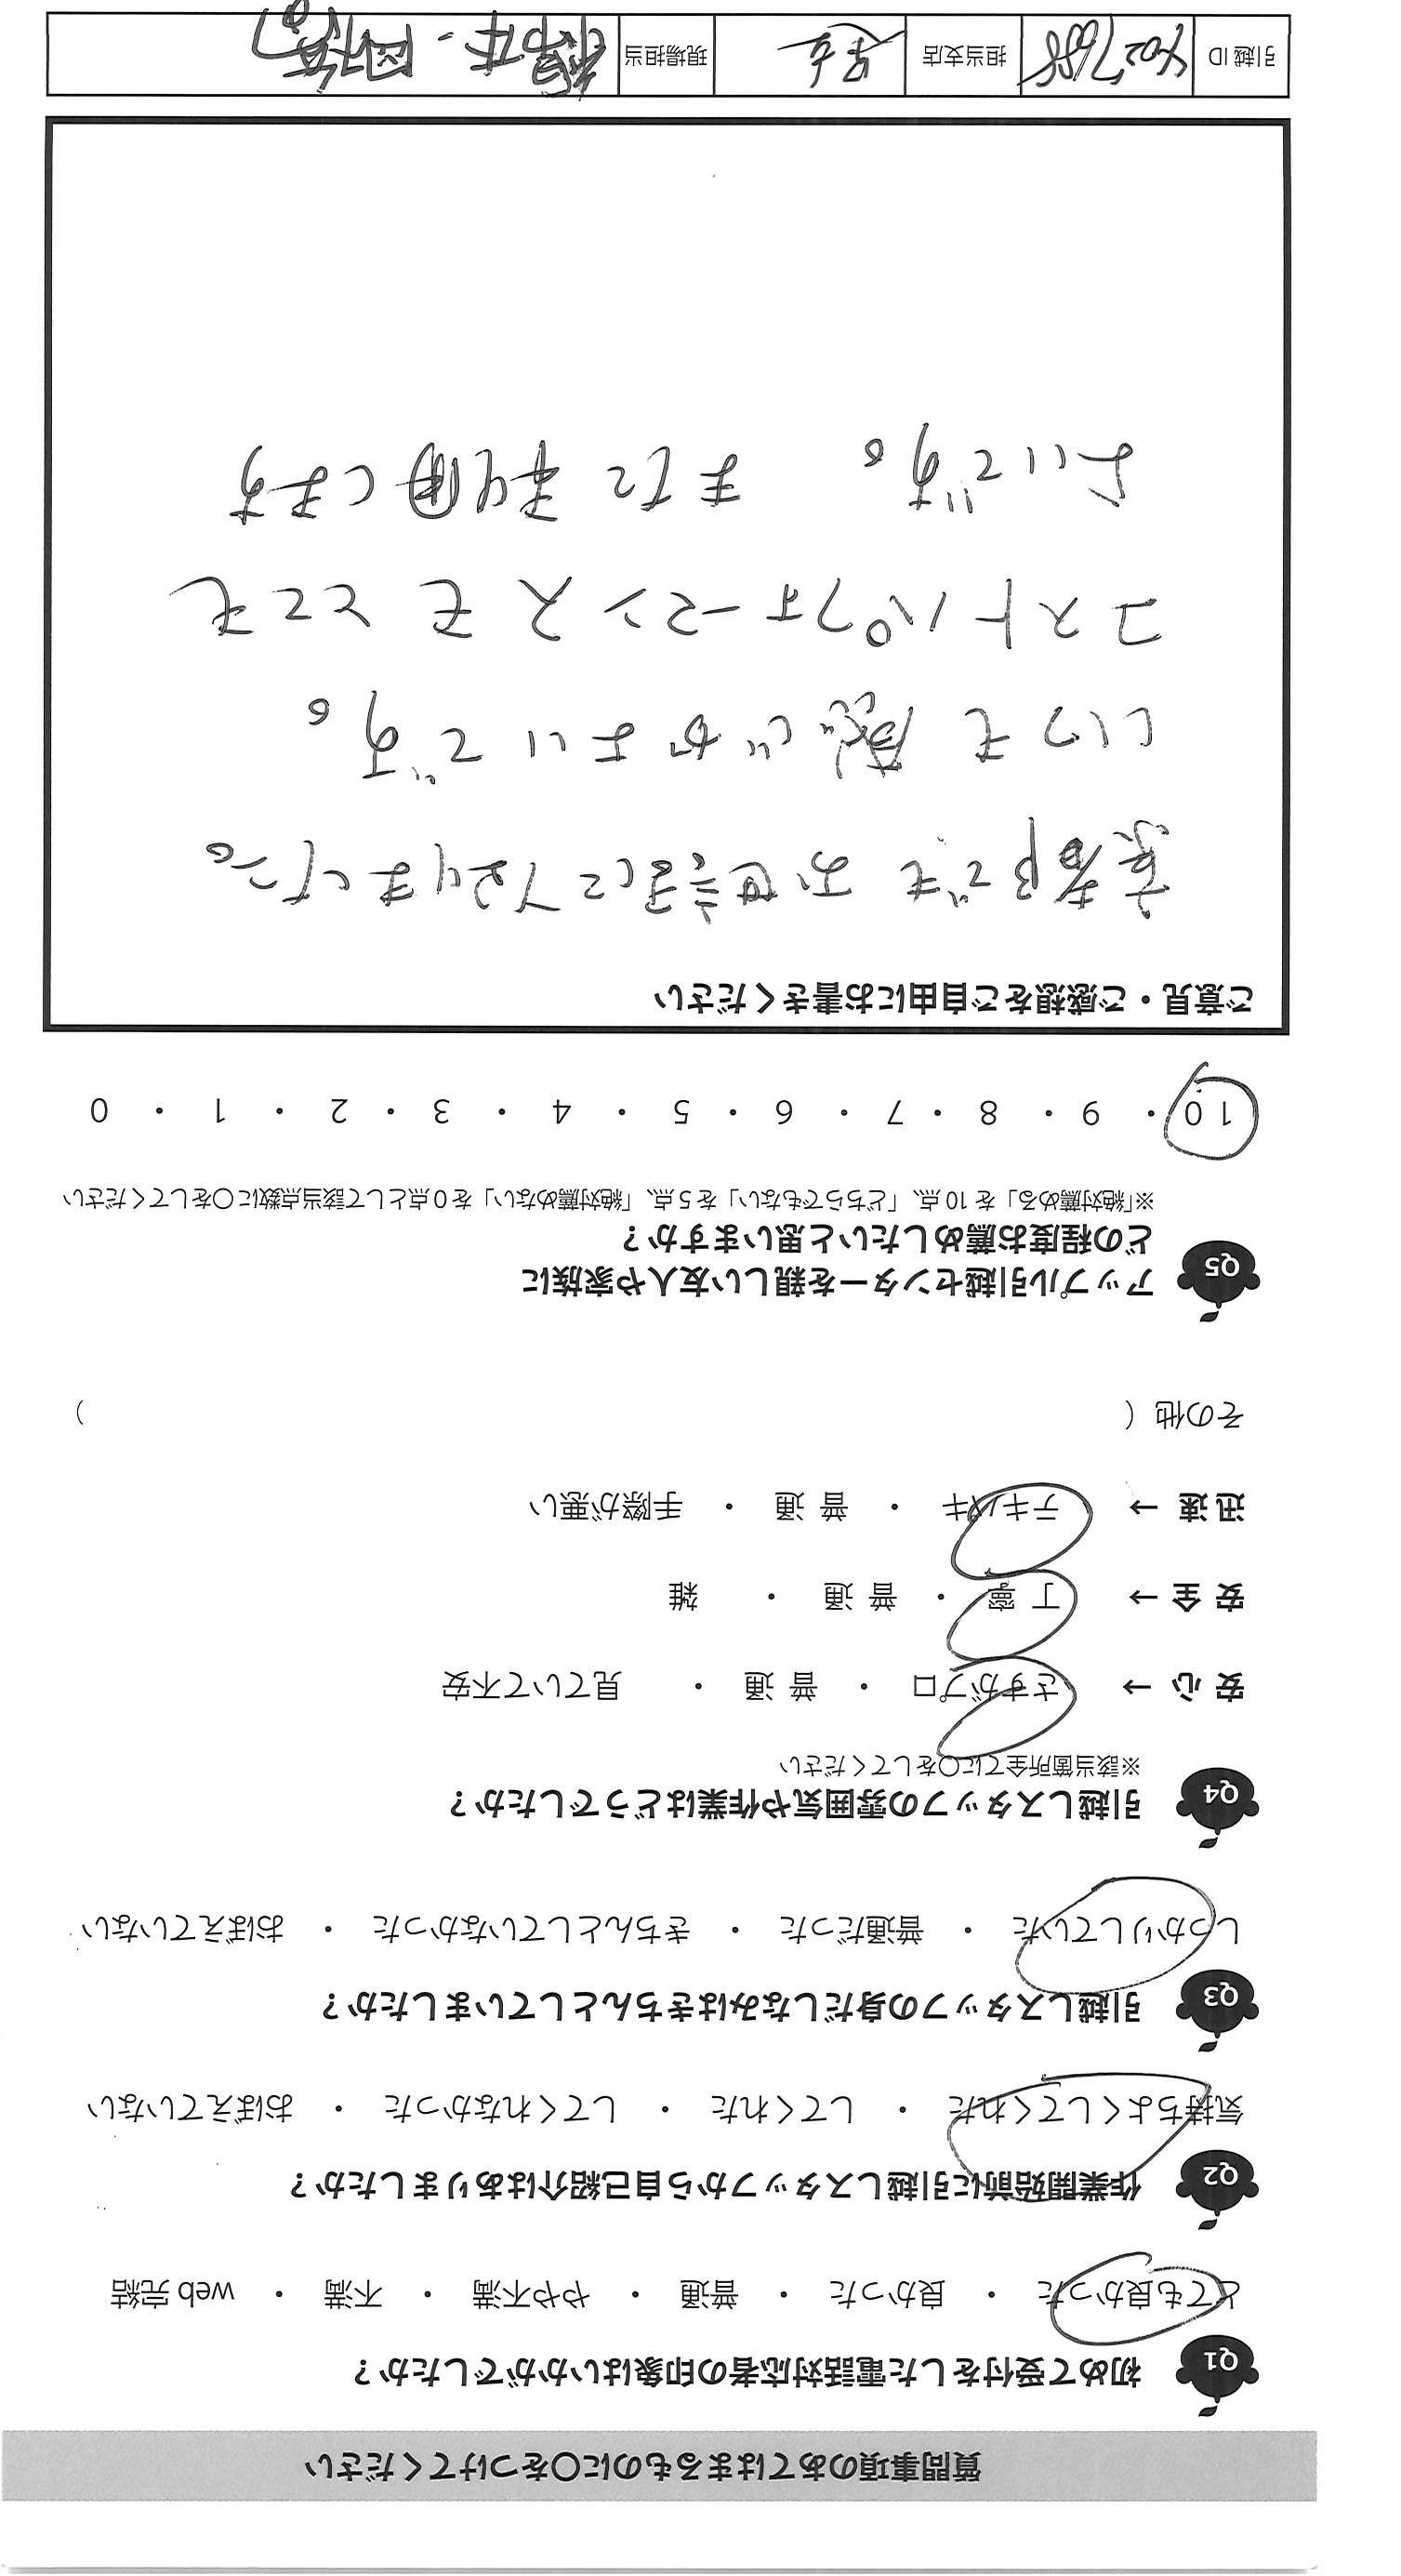 質問事項のあてはまるものに〇をつけてください
Q1 初めて受付をした電話対応者の印象はいかがでしたか？
とても良かった ・ 良かった ・ 普通 ・ やや不満 ・ 不満 ・ web 完結
Q2 作業開始前に引越しスタッフから自己紹介はありましたか？
気持ちよくしてくれた ・ してくれた ・ してくれなかった ・ おぼえていない
Q3 引越しスタッフの身だしなみはきちんとしていましたか？
しっかりしていた ・ 普通だった ・ きちんとしていなかった ・ おぼえていない
Q4 引越しスタッフの雰囲気や作業はどうでしたか？
※該当箇所全てに〇をしてください
安 心 → さすがプロ ・ 普 通 ・ 見ていて不安
安 全 → 丁 寧 ・ 普 通 ・ 雑
迅 速 → テキパキ ・ 普 通 ・ 手際が悪い
その他（ ）
Q5 アップル引越センターを親しい友人や家族に
どの程度お薦めしたいと思いますか？
※「絶対薦める」を 10 点、「どちらでもない」を 5 点、「絶対薦めない」を 0 点として該当点数に〇をしてください
10 ・ 9 ・ 8 ・ 7 ・ 6 ・ 5 ・ 4 ・ 3 ・ 2 ・ 1 ・ 0
ご意見・ご感想をご自由にお書きください
京都でもお世話になりました。
いつも感じがよいです。
コストパフォーマンスもとても
よいです。 また利用します
引越 ID 担当支店 現場担当